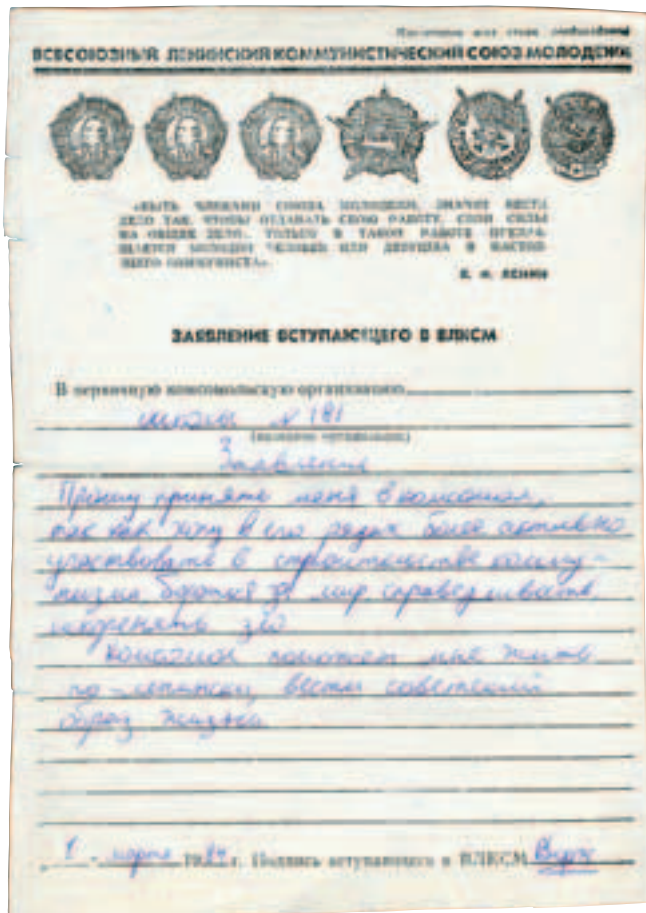 Пролетарии всех стран, соединяйтесь!
ВСЕСОЮЗНЫЙ ЛЕНИНСКИЙ КОММУНИСТИЧЕСКИЙ СОЮЗ МОЛОДЕЖИ
«БЫТЬ ЧЛЕНАМИ СОЮЗА МОЛОДЕЖИ, ЗНАЧИТ ВЕСТИ
ДЕЛО ТАК, ЧТОБЫ ОТДАВАТЬ СВОЮ РАБОТУ, СВОИ СИЛЫ
НА ОБЩЕЕ ДЕЛО. ТОЛЬКО В ТАКОЙ РАБОТЕ ПРЕВРА-
ЩАЕТСЯ МОЛОДОЙ ЧЕЛОВЕК ИЛИ ДЕВУШКА В НАСТОЯ-
ЩЕГО КОММУНИСТА».
В. И. ЛЕНИН
ЗАЯВЛЕНИЕ ВСТУПАЮЩЕГО В ВЛКСМ
В первичную комсомольскую организацию
школы № 181
(название организации)
Заявление
Прошу принять меня в комсомол,
так как хочу в его рядах более активно
участвовать в строительстве комму-
низма бороться за мир справедливость
искоренять зло
Комсомол поможет мне жить
по-ленински, вести советский
образ жизни
1 марта 1984 г. Подпись вступающего в ВЛКСМ